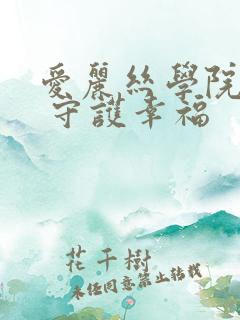 愛麗絲學院
守護幸福
花千樹
未經同意禁止轉載